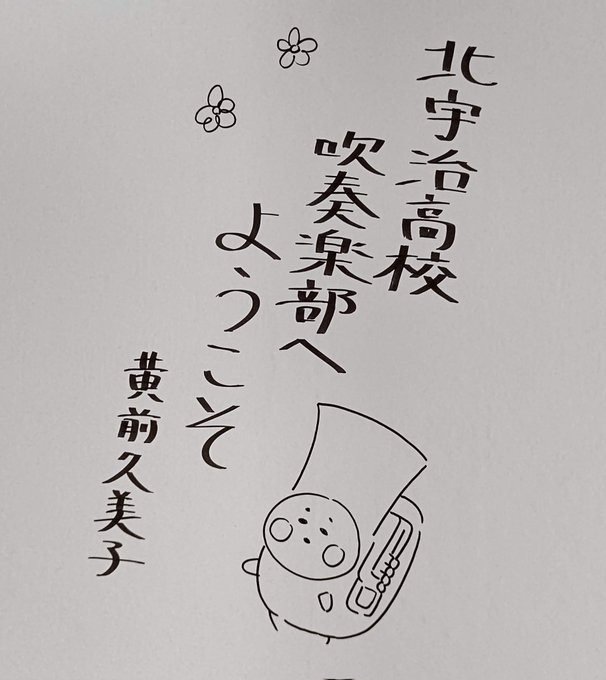 北宇治高校
吹奏楽部へ
ようこそ
黄前久美子